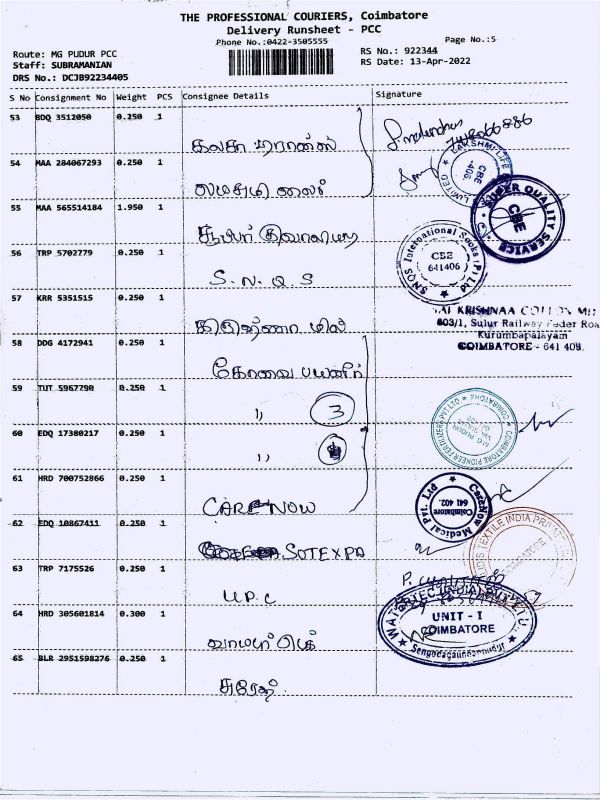 THE PROFESSIONAL COURIERS, Coimbatore
Delivery Runsheet - PCC
Phone No.:0422-3505555
Page No.:5
Route: MG PUDUR PCC
Staff: SUBRAMANIAN
DRS No.: DCJB92234405
RS No.: 922344
RS Date: 13-Apr-2022
S No Consignment No Weight PCS Consignee Details Signature
53 BDQ 3512050 0.250 1
54 MAA 284067293 0.250 1
LAKSHMI LIFE
LIMITED
CBE
-406
55 MAA 565514184 1.950 1
SUPER QUALITY
CBE
SERVICE
56 TRP 5702779 0.250 1
S.N.Q.S
SNQS International Socks (P) Ltd
CBE
641406
57 KRR 5351515 0.250 1
கிருஷ்ணா மில்
SAI KRISHNAA COTTON MILL
603/1, Sulur Railway Feder Roa
Kurumbapalayam
COIMBATORE - 641 408.
58 DDG 4172941 0.250 1
கோவை பயணீர்
59 TUT 5967790 0.250 1
" 3
60 EDQ 17380217 0.250 1
"
COIMBATORE PIONEER FERTILIZERS PVT LTD
61 HRD 700752866 0.250 1
CARE NOW
CareNow Medical Pvt. Ltd
Coimbatore
641 402.
62 EDQ 10867411 0.250 1
SOTEXPA
TEXTILE INDIA
COIMBATORE
63 TRP 7175526 0.250 1
U.P.C
64 HRD 305601814 0.300 1
WATERTEC INDIA PVT LTD.
UNIT - I
COIMBATORE
65 BLR 2951598276 0.250 1
சுரேஷ்